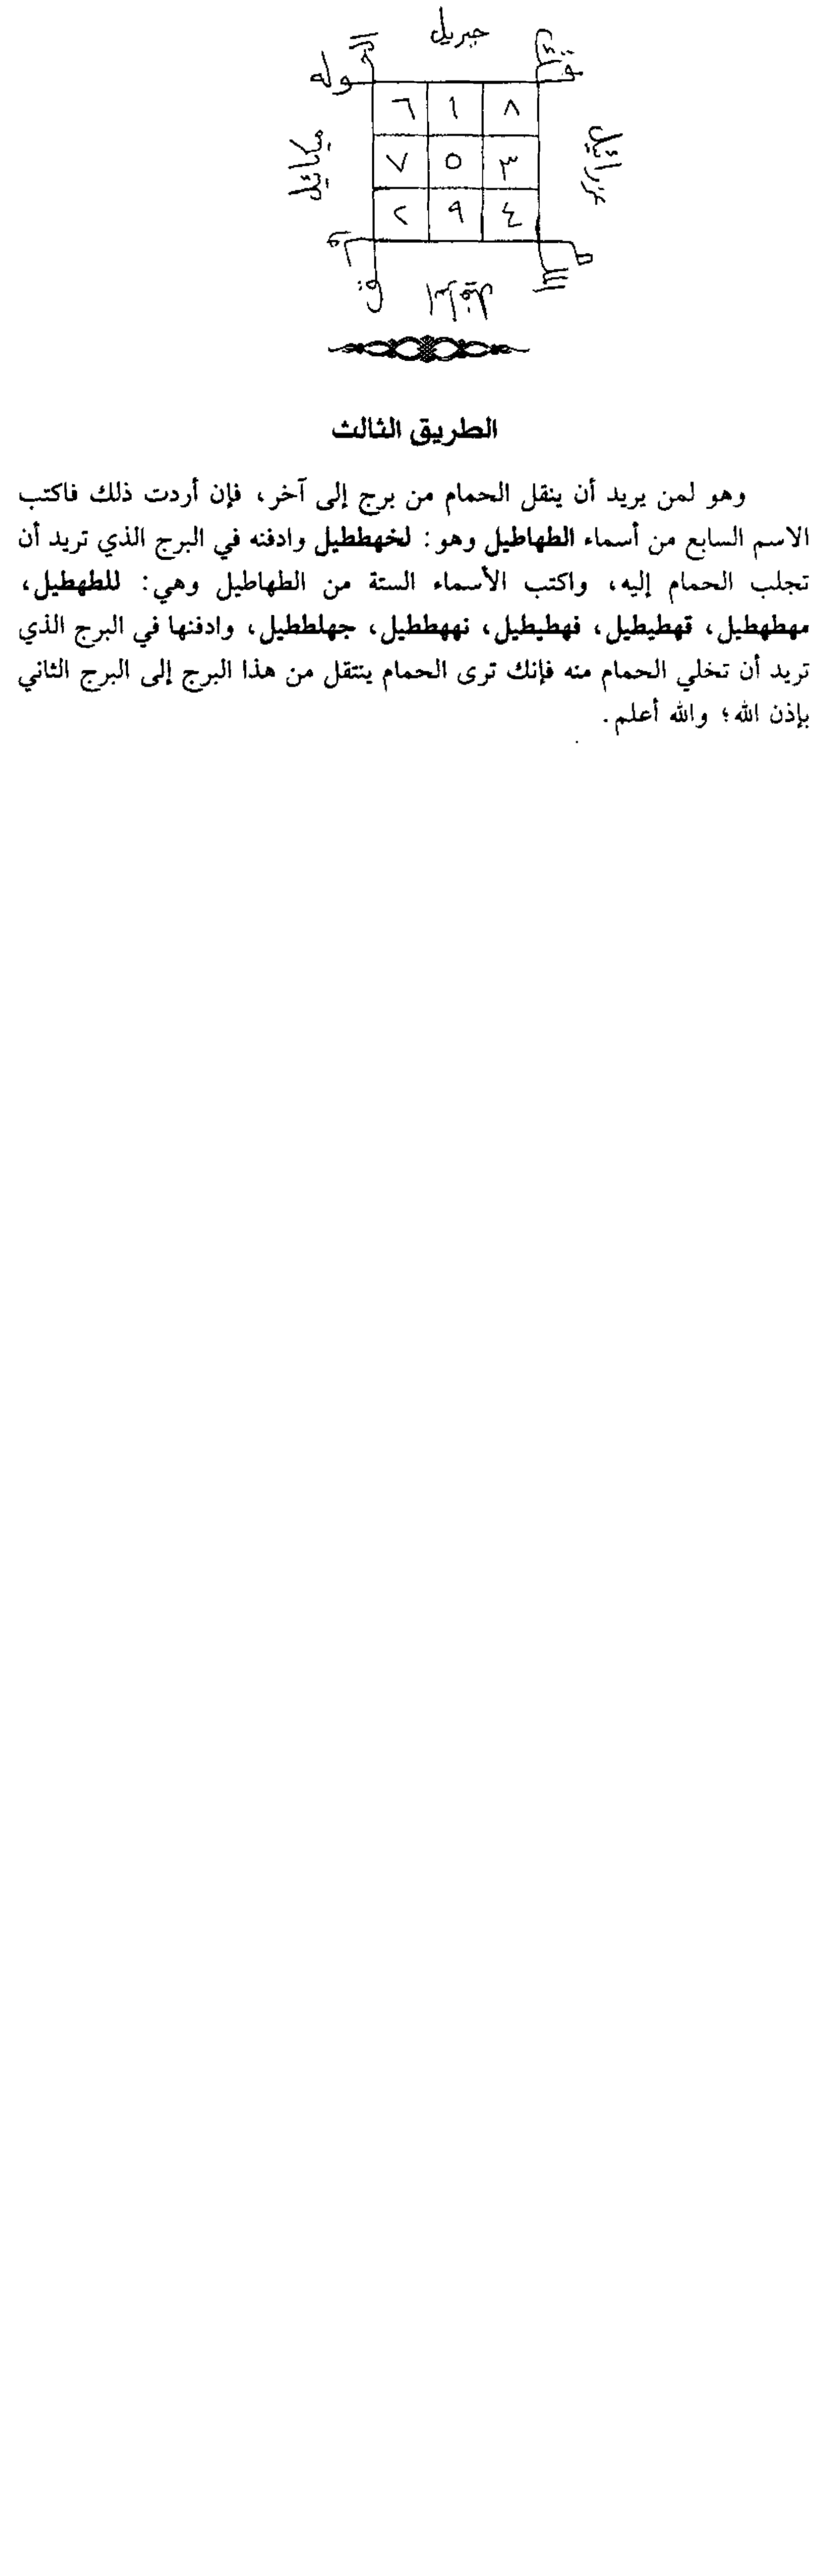 جبريل
قوله الحق
٦ ١ ٨
ميكائيل
٧ ٥ ٣
عزرائيل
٢ ٩ ٤
الطريق الثالث
وهو لمن يريد أن ينقل الحمام من برج إلى آخر، فإن أردت ذلك فاكتب
الاسم السابع من أسماء الطهاطيل وهو: لخهططيل وادفنه في البرج الذي تريد أن
تجلب الحمام إليه، واكتب الأسماء الستة من الطهاطيل وهي: للطهطيل،
مهطهطيل، قهطيطيل، فهطيطيل، نههططيل، جهلططيل، وادفنها في البرج الذي
تريد أن تخلي الحمام منه فإنك ترى الحمام ينتقل من هذا البرج إلى البرج الثاني
بإذن الله؛ والله أعلم.